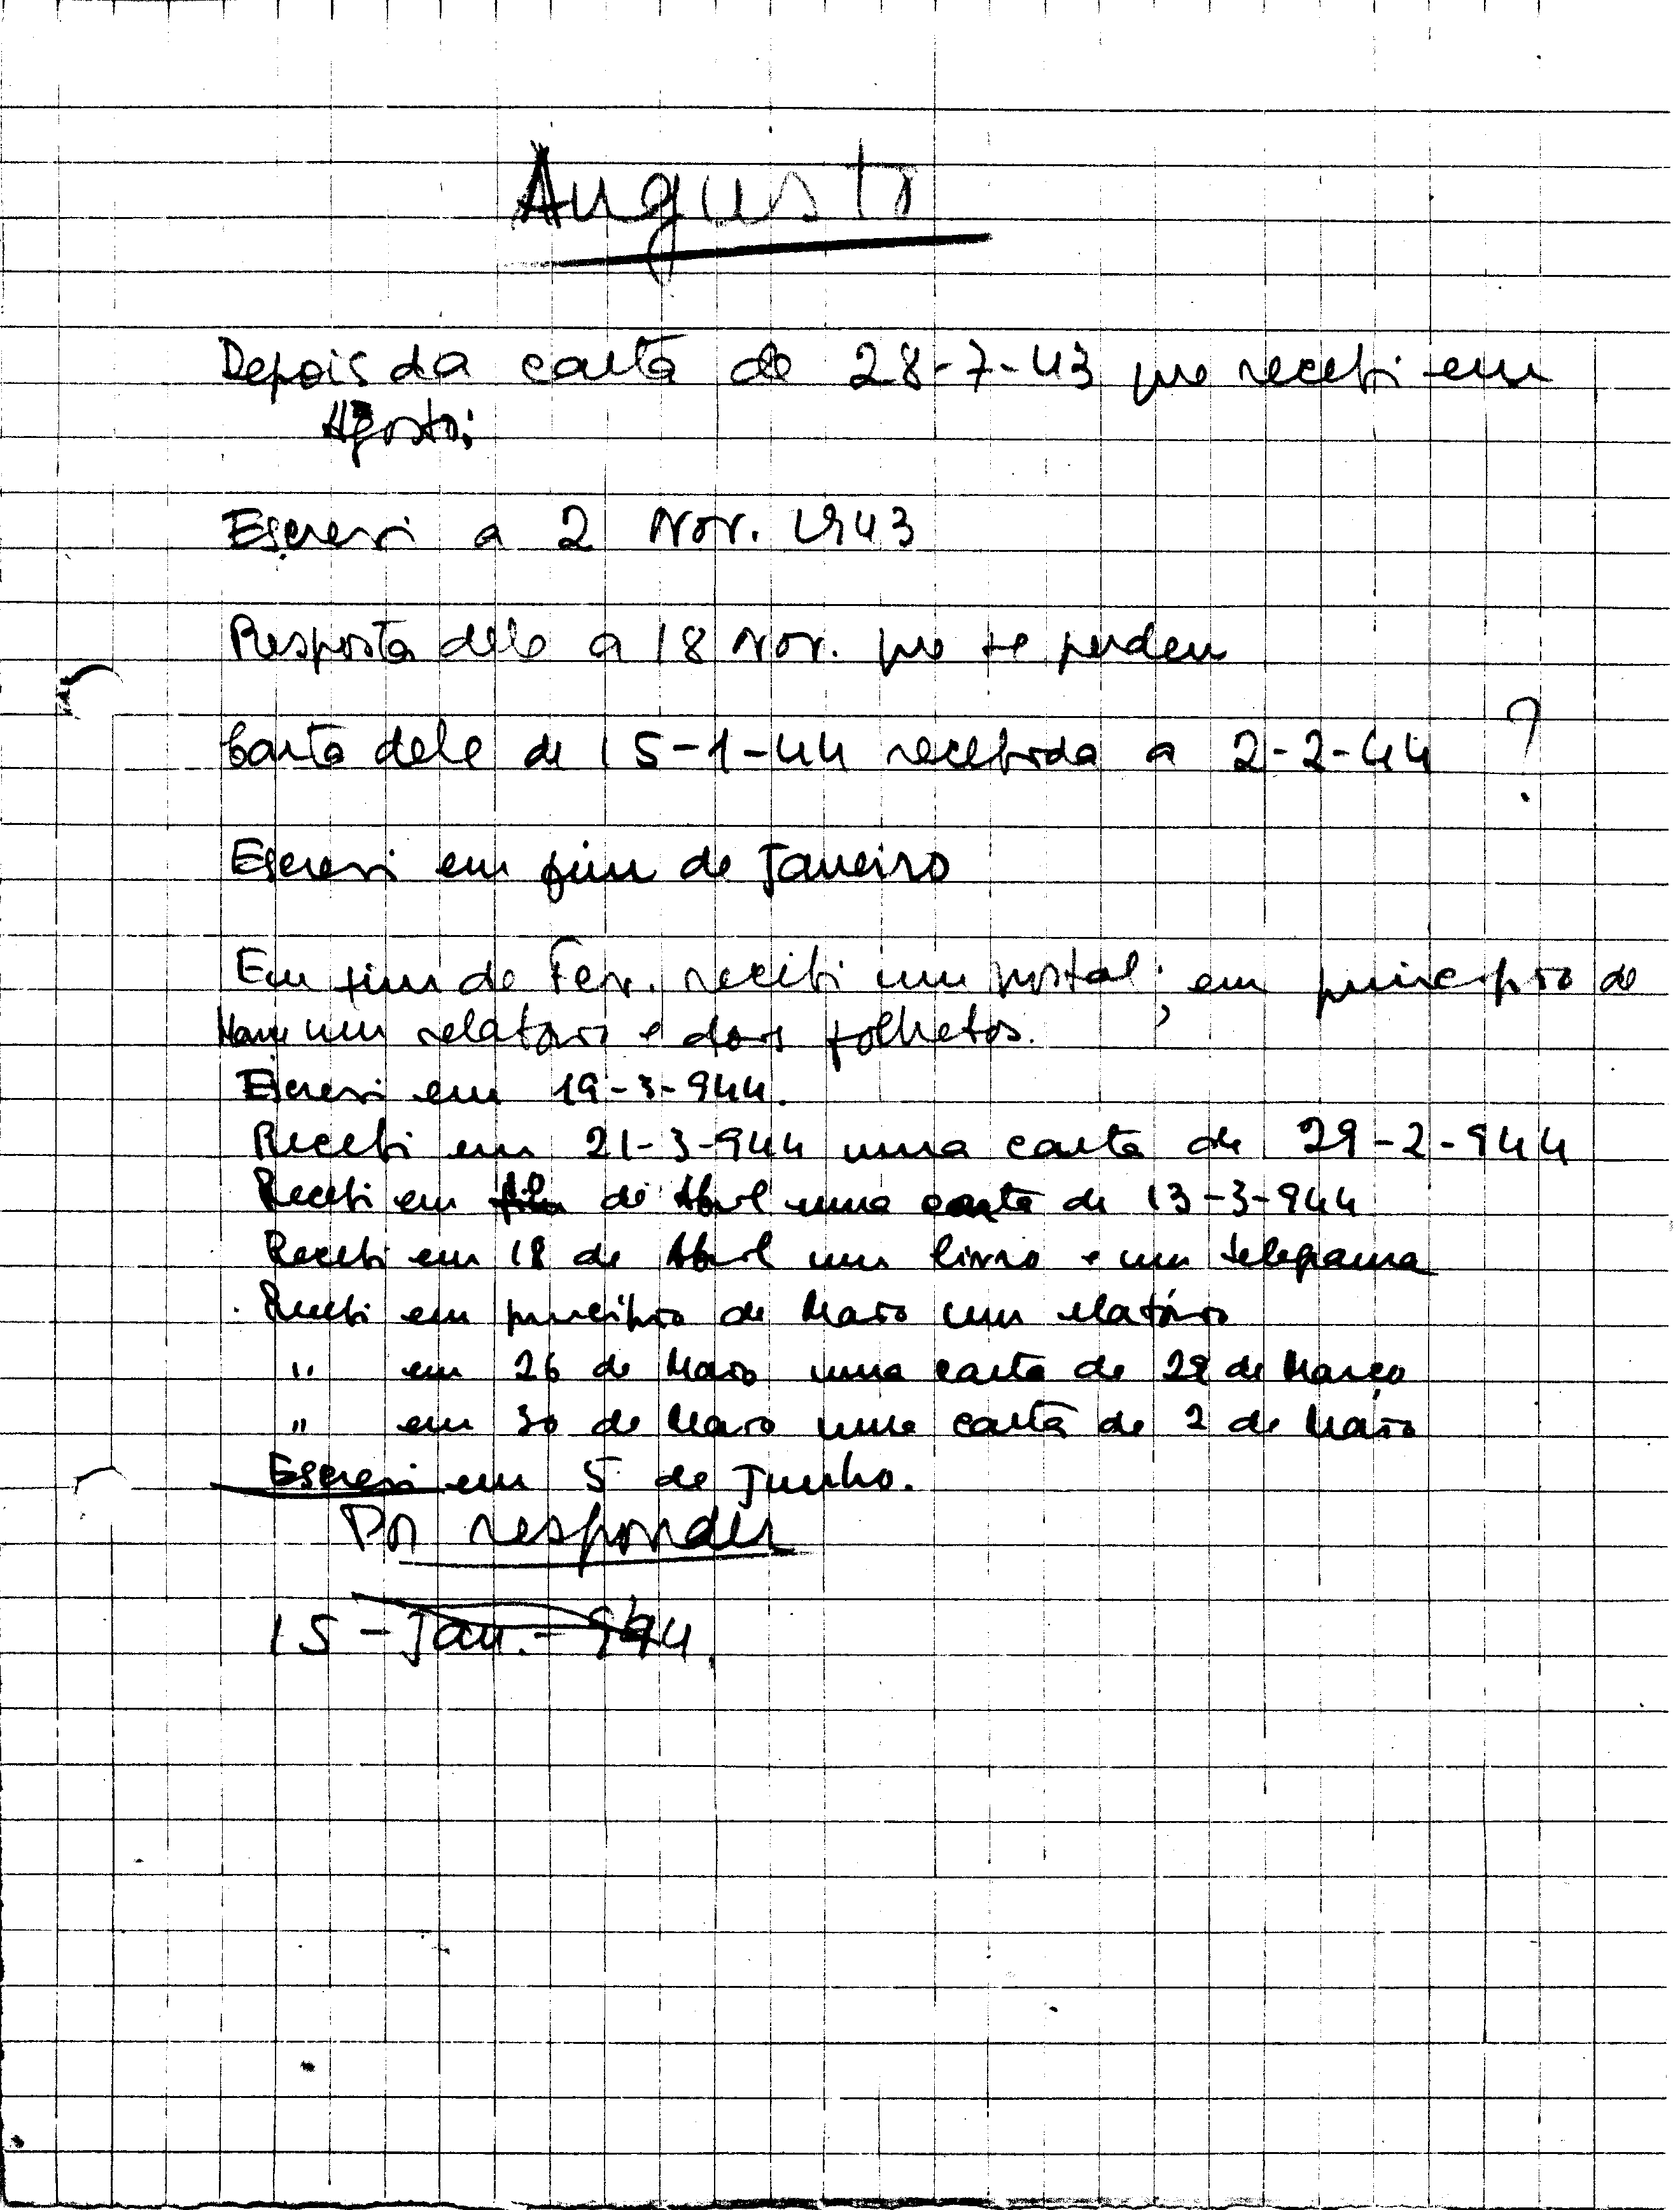 Augusto
Depois da carta de 28-7-43 que recebi em
Agosto:
Escrevi a 2 Nov. 1943
Resposta dele a 18 Nov. que se perdeu
Carta dele de 15-1-44 recebida a 2-2-44 ?
Escrevi em fim de Janeiro
Em fim de Fev. recebi um postal; em princípio de
Março um relatório e dois folhetos.
Escrevi em 19-3-944.
Recebi em 21-3-944 uma carta de 29-2-944
Recebi em de Abril uma carta de 13-3-944
Recebi em 18 de Abril um livro e um telegrama
Recebi em princípio de Maio um relatório
" em 26 de Maio uma carta de 28 de Março
" em 30 de Maio uma carta de 2 de Maio
Escrevi em 5 de Junho.
Por responder
15-Jan.-944.